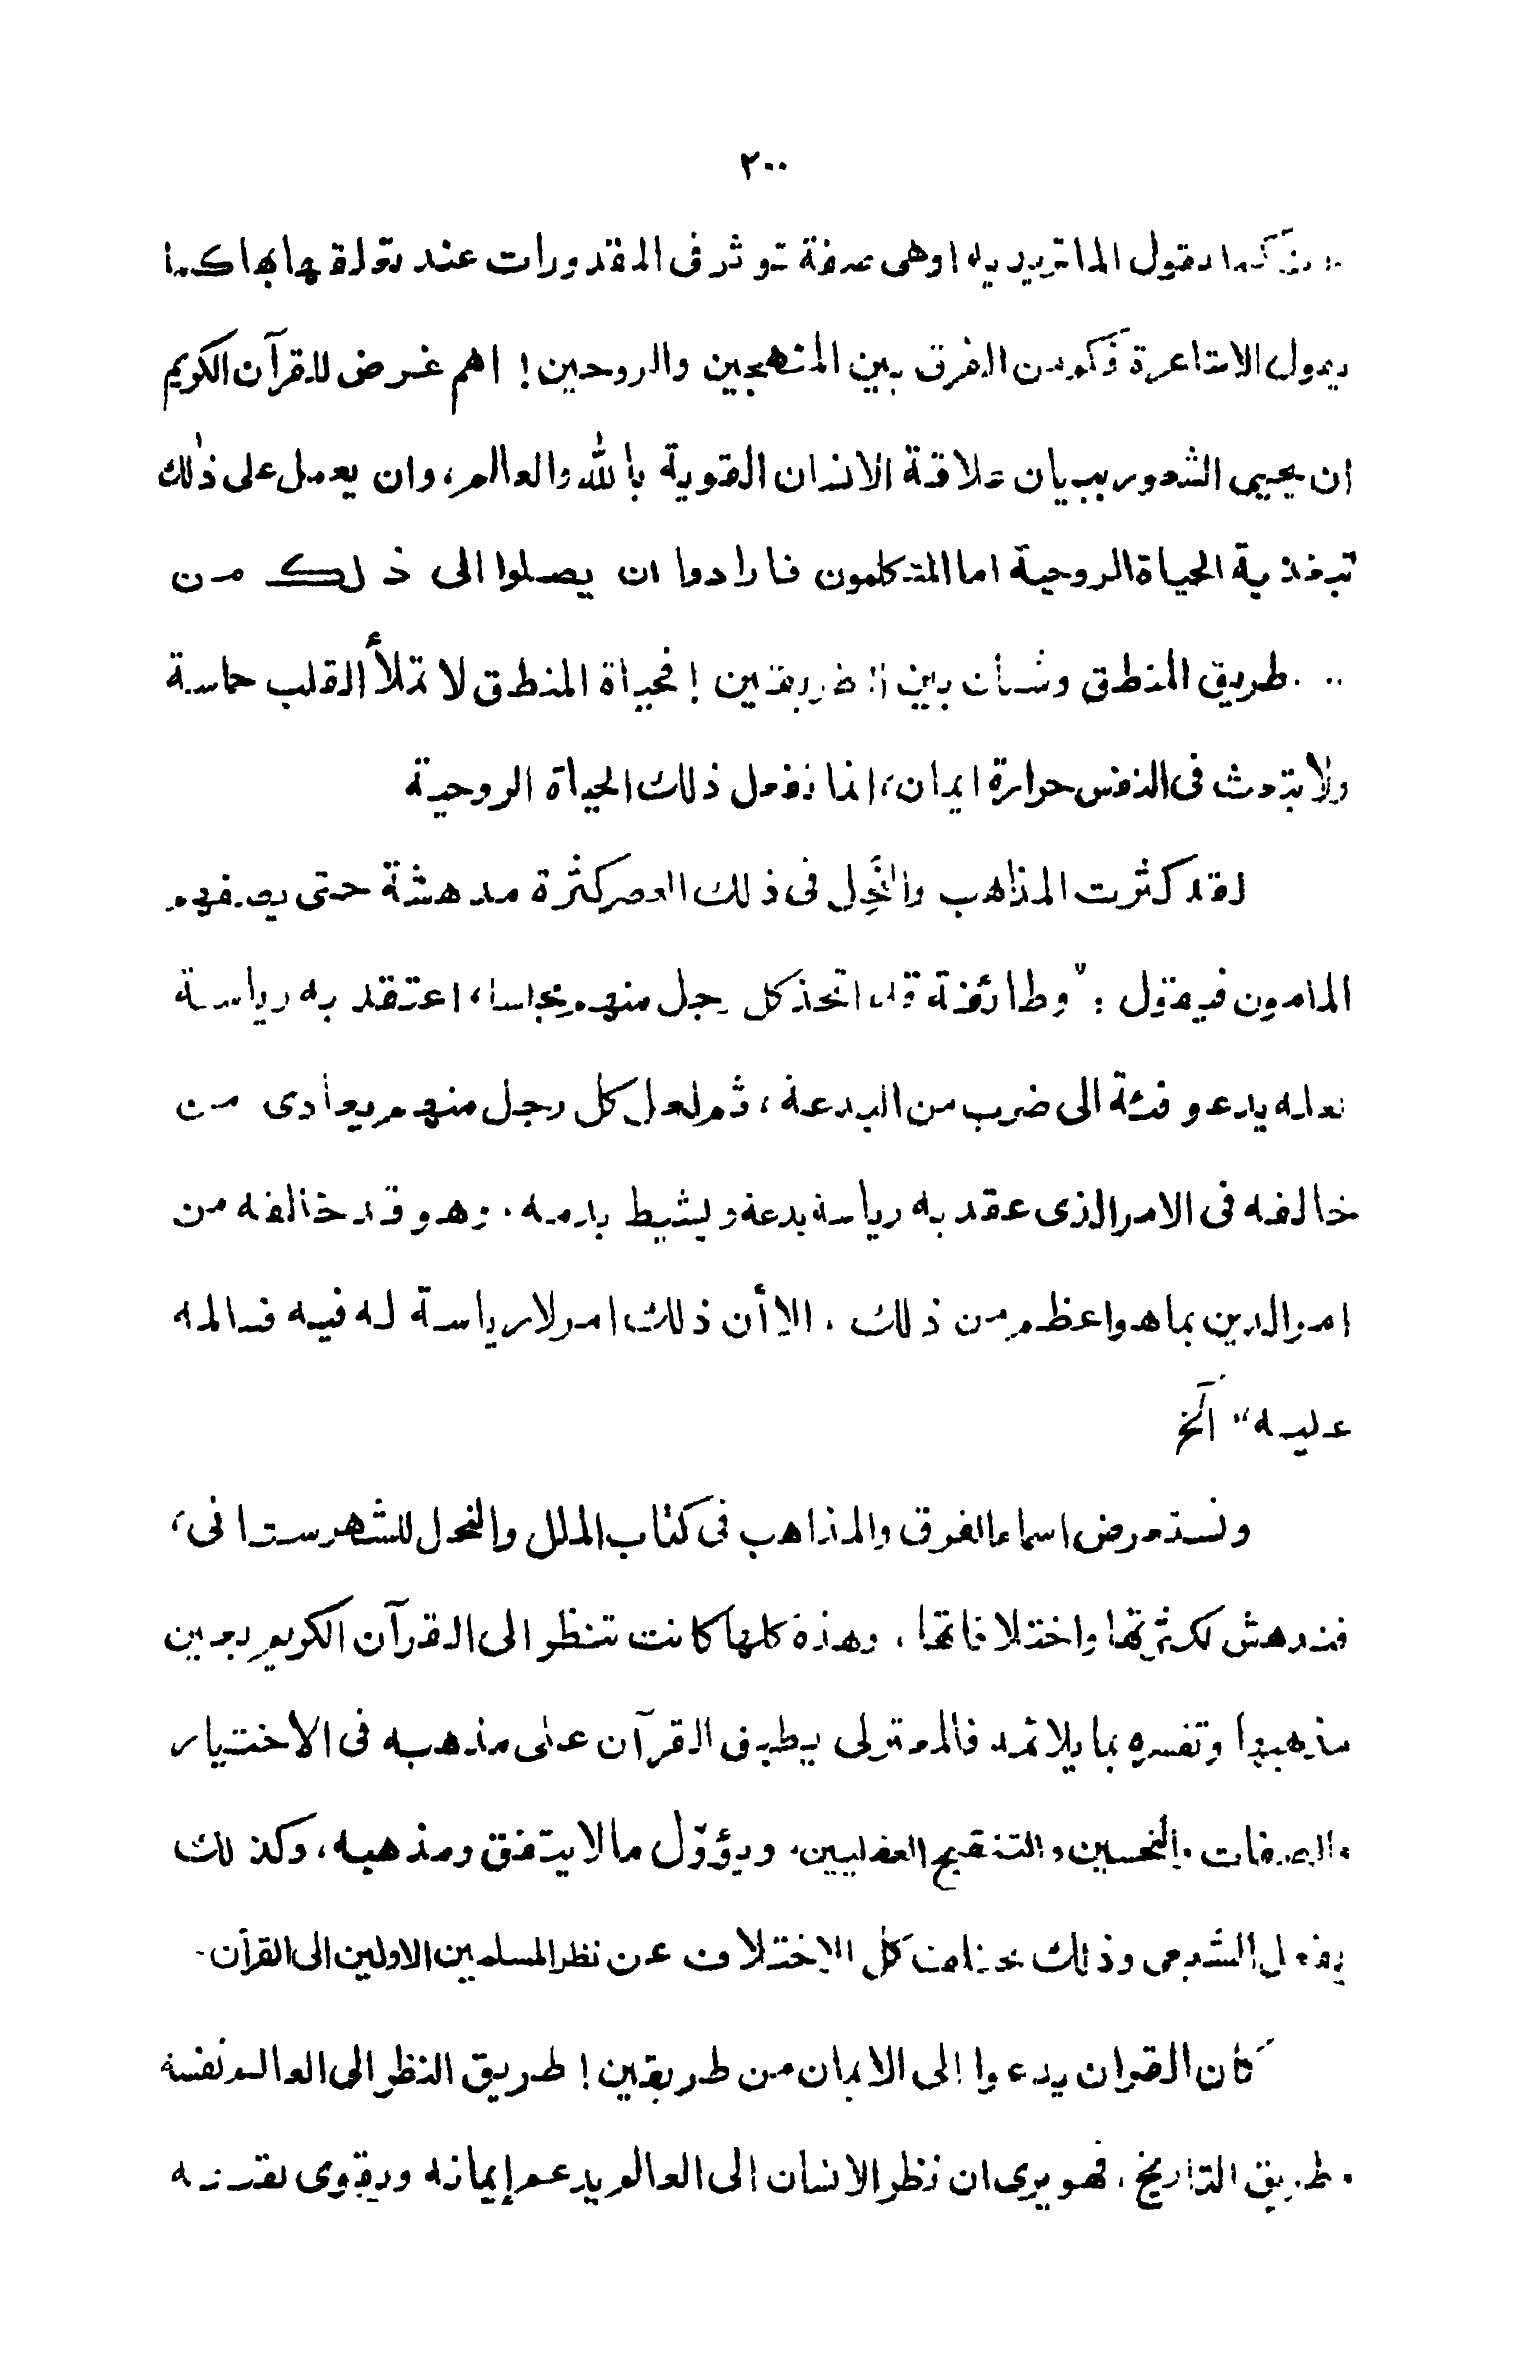 ٢٠٠
كما يقول الماتريديه اوهى صفة توثر فى المقدورات عند تعلقها بها كما
يقول الاشاعرة فكم من الفرق بين المنهجين والروحين! اهم غرض للقرآن الكريم
ان يحيى الشعور ببيان علاقة الانسان القوية بالله والعالم، وان يعمل على ذلك
تبغذية الحياة الروحية اما المتكلمون فارادوا ان يصلوا الى ذلك من
طريق المنطق وشتان بين الطريقين! فحياة المنطق لا تملأ القلب حماسة
ولا تبعث فى النفس حرارة ايمان، انما تفعل ذلك الحياة الروحية
لقد كثرت المذاهب والنِّحِل فى ذلك العصر كثرة مدهشة حتى يصفهم
المامون فيقول: "وطائفة قد اتخذ كل رجل منهم مجلسا، اعتقد به رياسة
لعله يدعو فئة الى ضرب من البدعة، ثم لعل كل رجل منهم يعادى من
خالفه فى الامر الذى عقد به رياسة بدعة ويشيط بدمه. وهو قد خالفه من
امر الدين بما هو اعظم من ذلك. الا أن ذلك امر لا رياسة له فيه فسالمه
عليه" الخ
ونستعرض اسماء الفرق والمذاهب فى كتاب الملل والنحل للشهرستانى،
فندهش لكثرتها واختلافاتها. وهذه كلها كانت تنظر الى القرآن الكريم بعين
مذهبها وتفسره بما يلائمه فالمعتزلى يطبق القرآن على مذهبه فى الاختيار
والصفات والتحسين والتنقيح العقليين. ويؤوّل ما لا يتفق ومذهبه، وكذلك
يفعل الشيعى وذلك كل الاختلاف عن نظر المسلمين الاولين الى القرآن-
كان القران يدعوا إلى الايمان من طريقين! طريق النظر الى العالم نفسه
وطريق التاريخ. فهو يرى ان نظر الانسان الى العالم يدعم إيمانه ويقوى